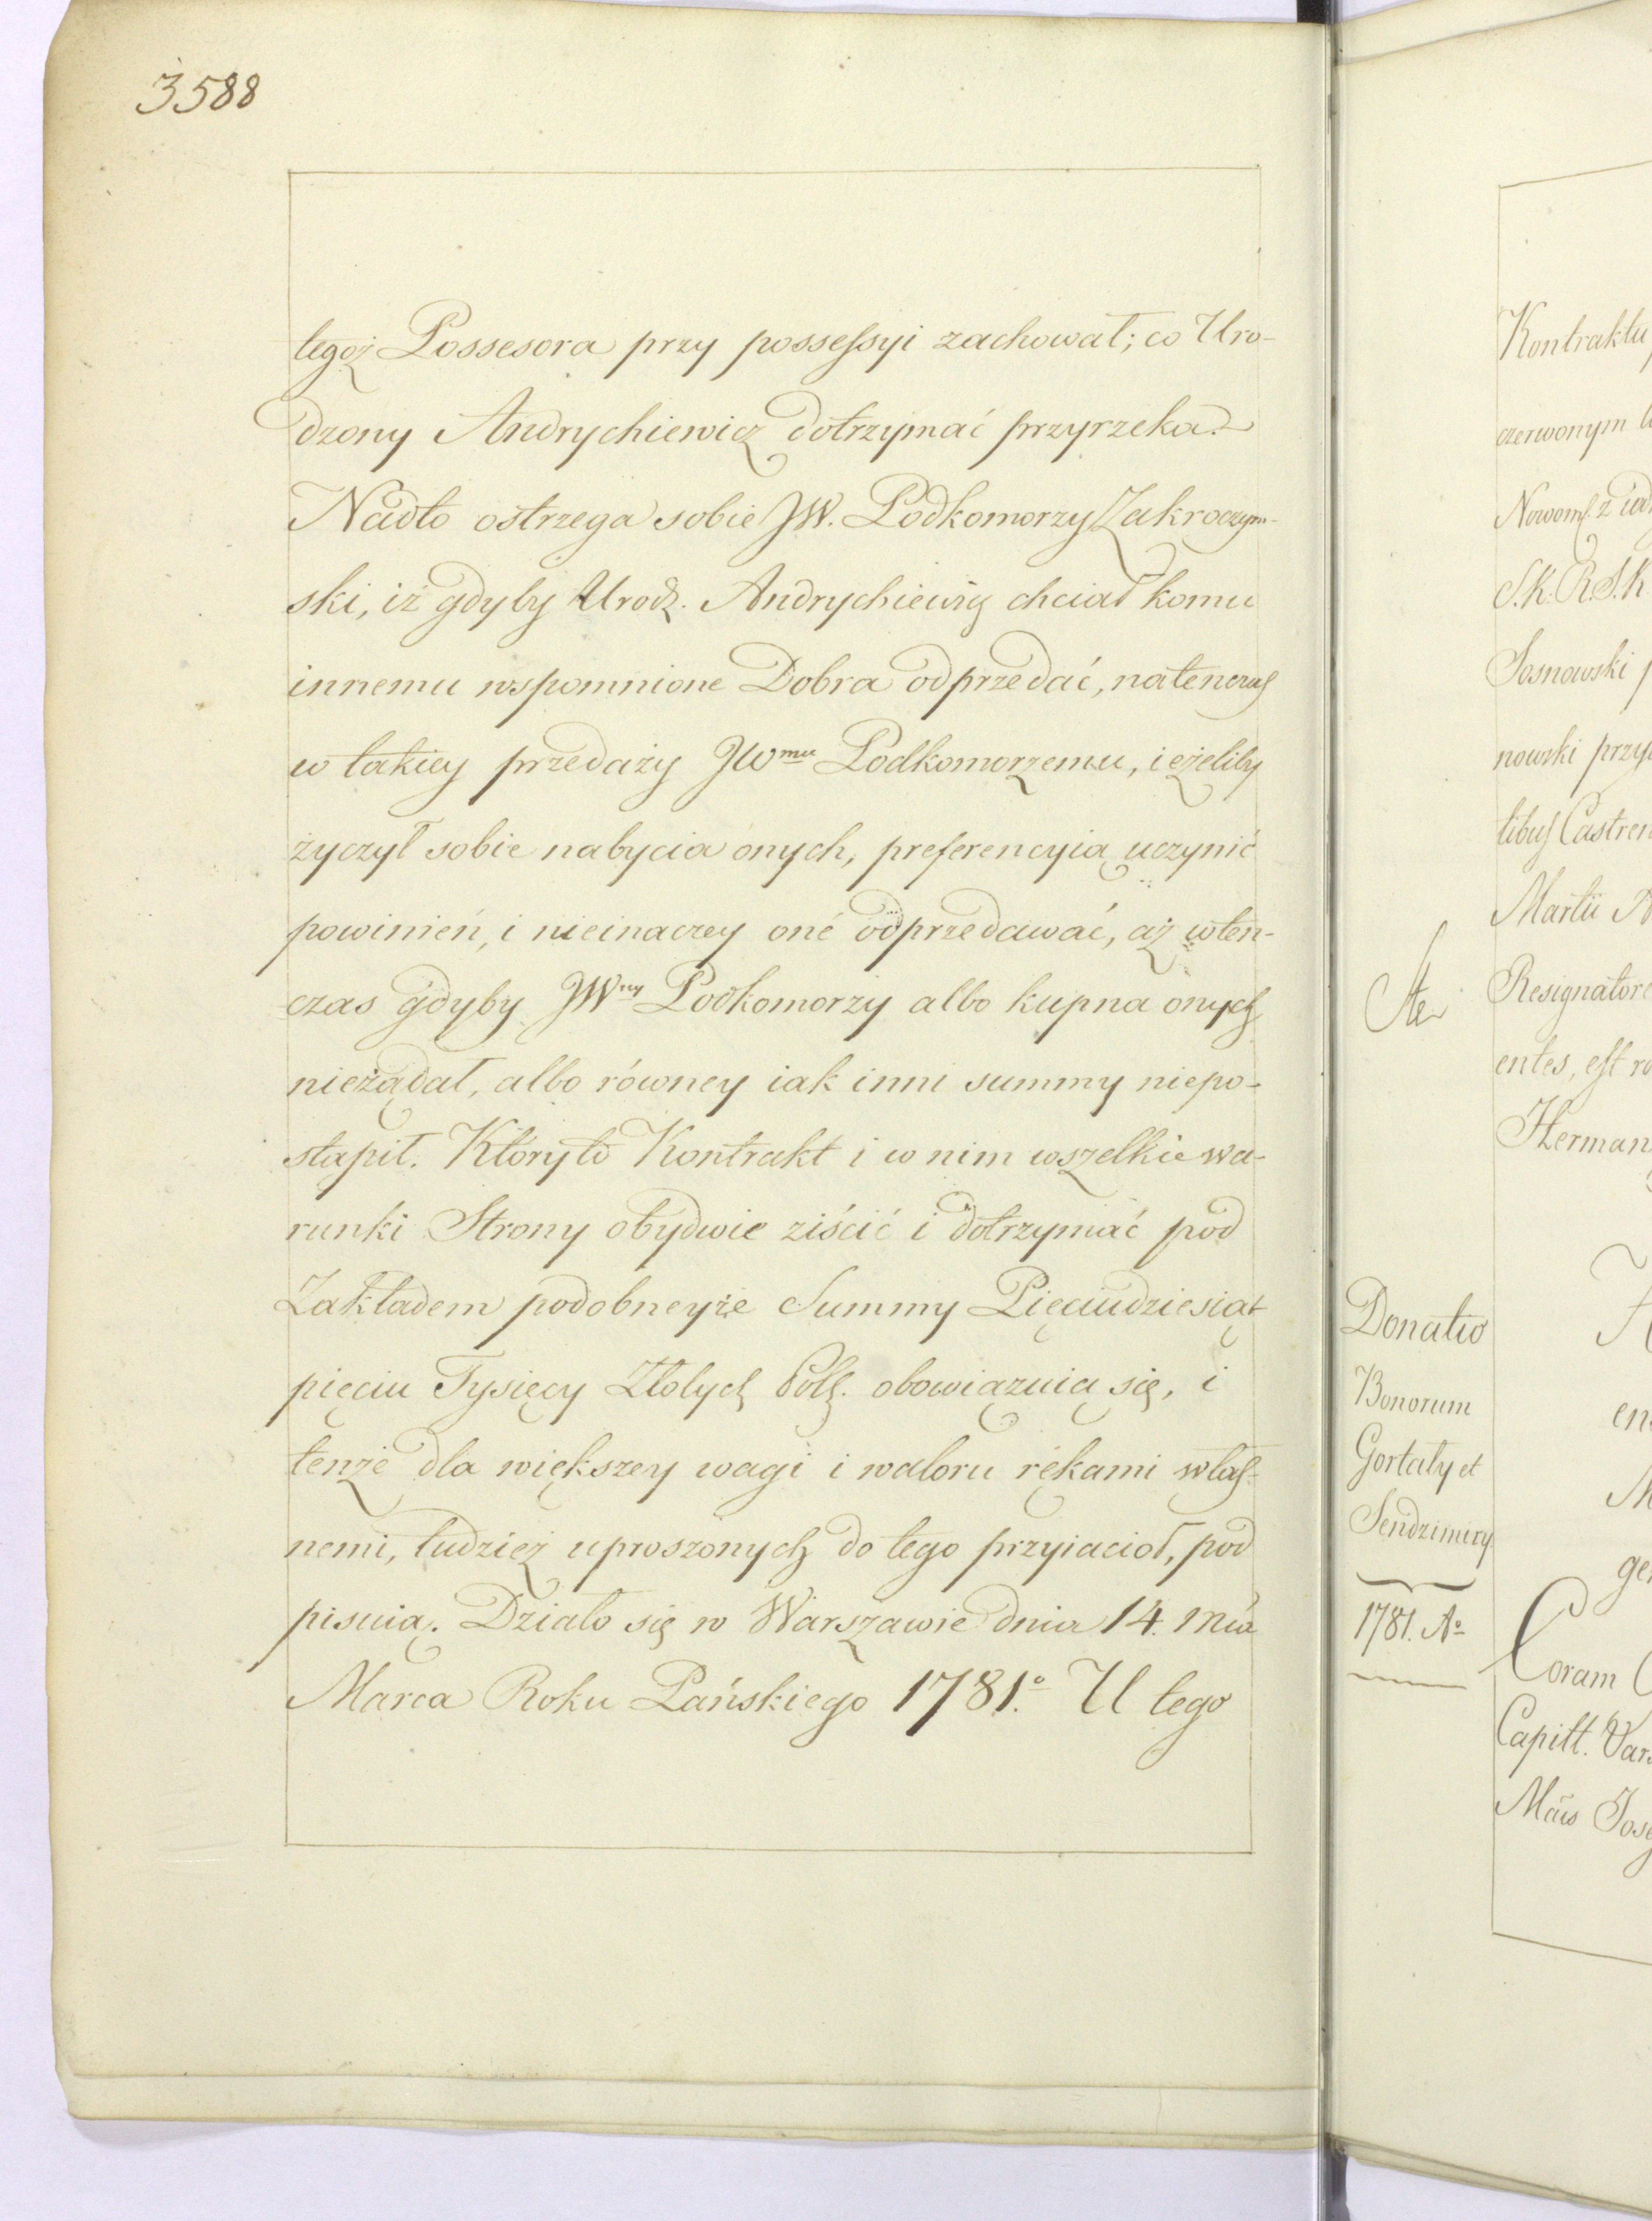 3588
tegoż Possesora przy possessyi zachował; co Uro-
dzony Andrychiewicz dotrzymać przyrzeka.
Nadto ostrzega sobie JW. Podkomorzy Zakroczym-
ski, iż gdyby Urodz. Andrychiewicz chciał komu
innemu wspomnione Dobra odprzedać, natenczas
w takiey przedaży JWmu Podkomorzemu, ieżeliby
życzył sobie nabycia onych, preferencyią uczynić
powinień, i nieinaczey oné odprzedawać, aż wten-
czas gdyby JWny Podkomorzy albo kupna onych
nieżądał, albo równey iak inni summy niepo-
stąpił. Któryto Kontrakt i w nim wszelkie wa-
runki Strony obydwie ziścić i dotrzymać pod
Zakładem podobneyże Summy Pięciudziesiąt
pięciu Tysięcy Złotych Polf. obowiązuią się, i
tenże dla większey wagi i waloru rękami włas-
nemi, tudzież uproszonych do tego przyiaciół, pod
pisuią. Działo się w Warszawie dnia 14. Mca
Marca Roku Pańskiego 1781.o U tego
Donatio
Bonorum
Gortaty et
Sendzimiry
1781. Ao
Kontraktu
czerwonym
Nowom. z
S.K.R.S.K
Sosnowski
nowski
tibus Castren
Martii
Resignatore
entes, est
Herman
Coram
Capitt. Var